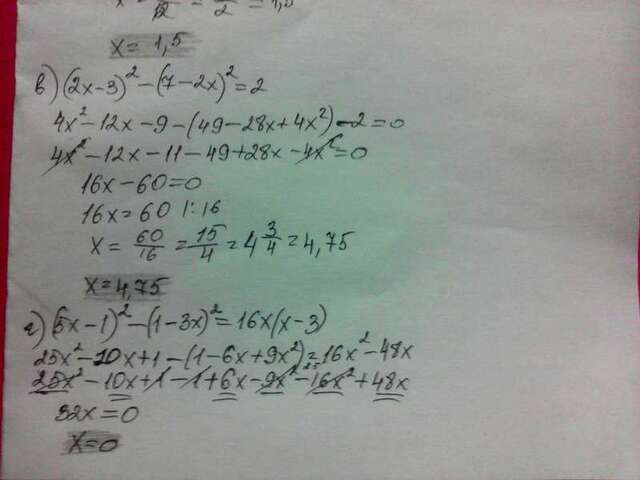 x = — 12 = — 2 = 1,5
x = 1,5
в) (2x-3)² - (7-2x)² = 2
4x² - 12x - 9 - (49 - 28x + 4x²) - 2 = 0
4x² - 12x - 11 - 49 + 28x - 4x² = 0
16x - 60 = 0
16x = 60 |: 16
x = 60/16 = 15/4 = 4 3/4 = 4,75
x = 4,75
г) (5x-1)² - (1-3x)² = 16x(x-3)
25x² - 10x + 1 - (1 - 6x + 9x²) = 16x² - 48x
25x² - 10x + 1 - 1 + 6x - 9x² - 16x² + 48x
32x = 0
x = 0